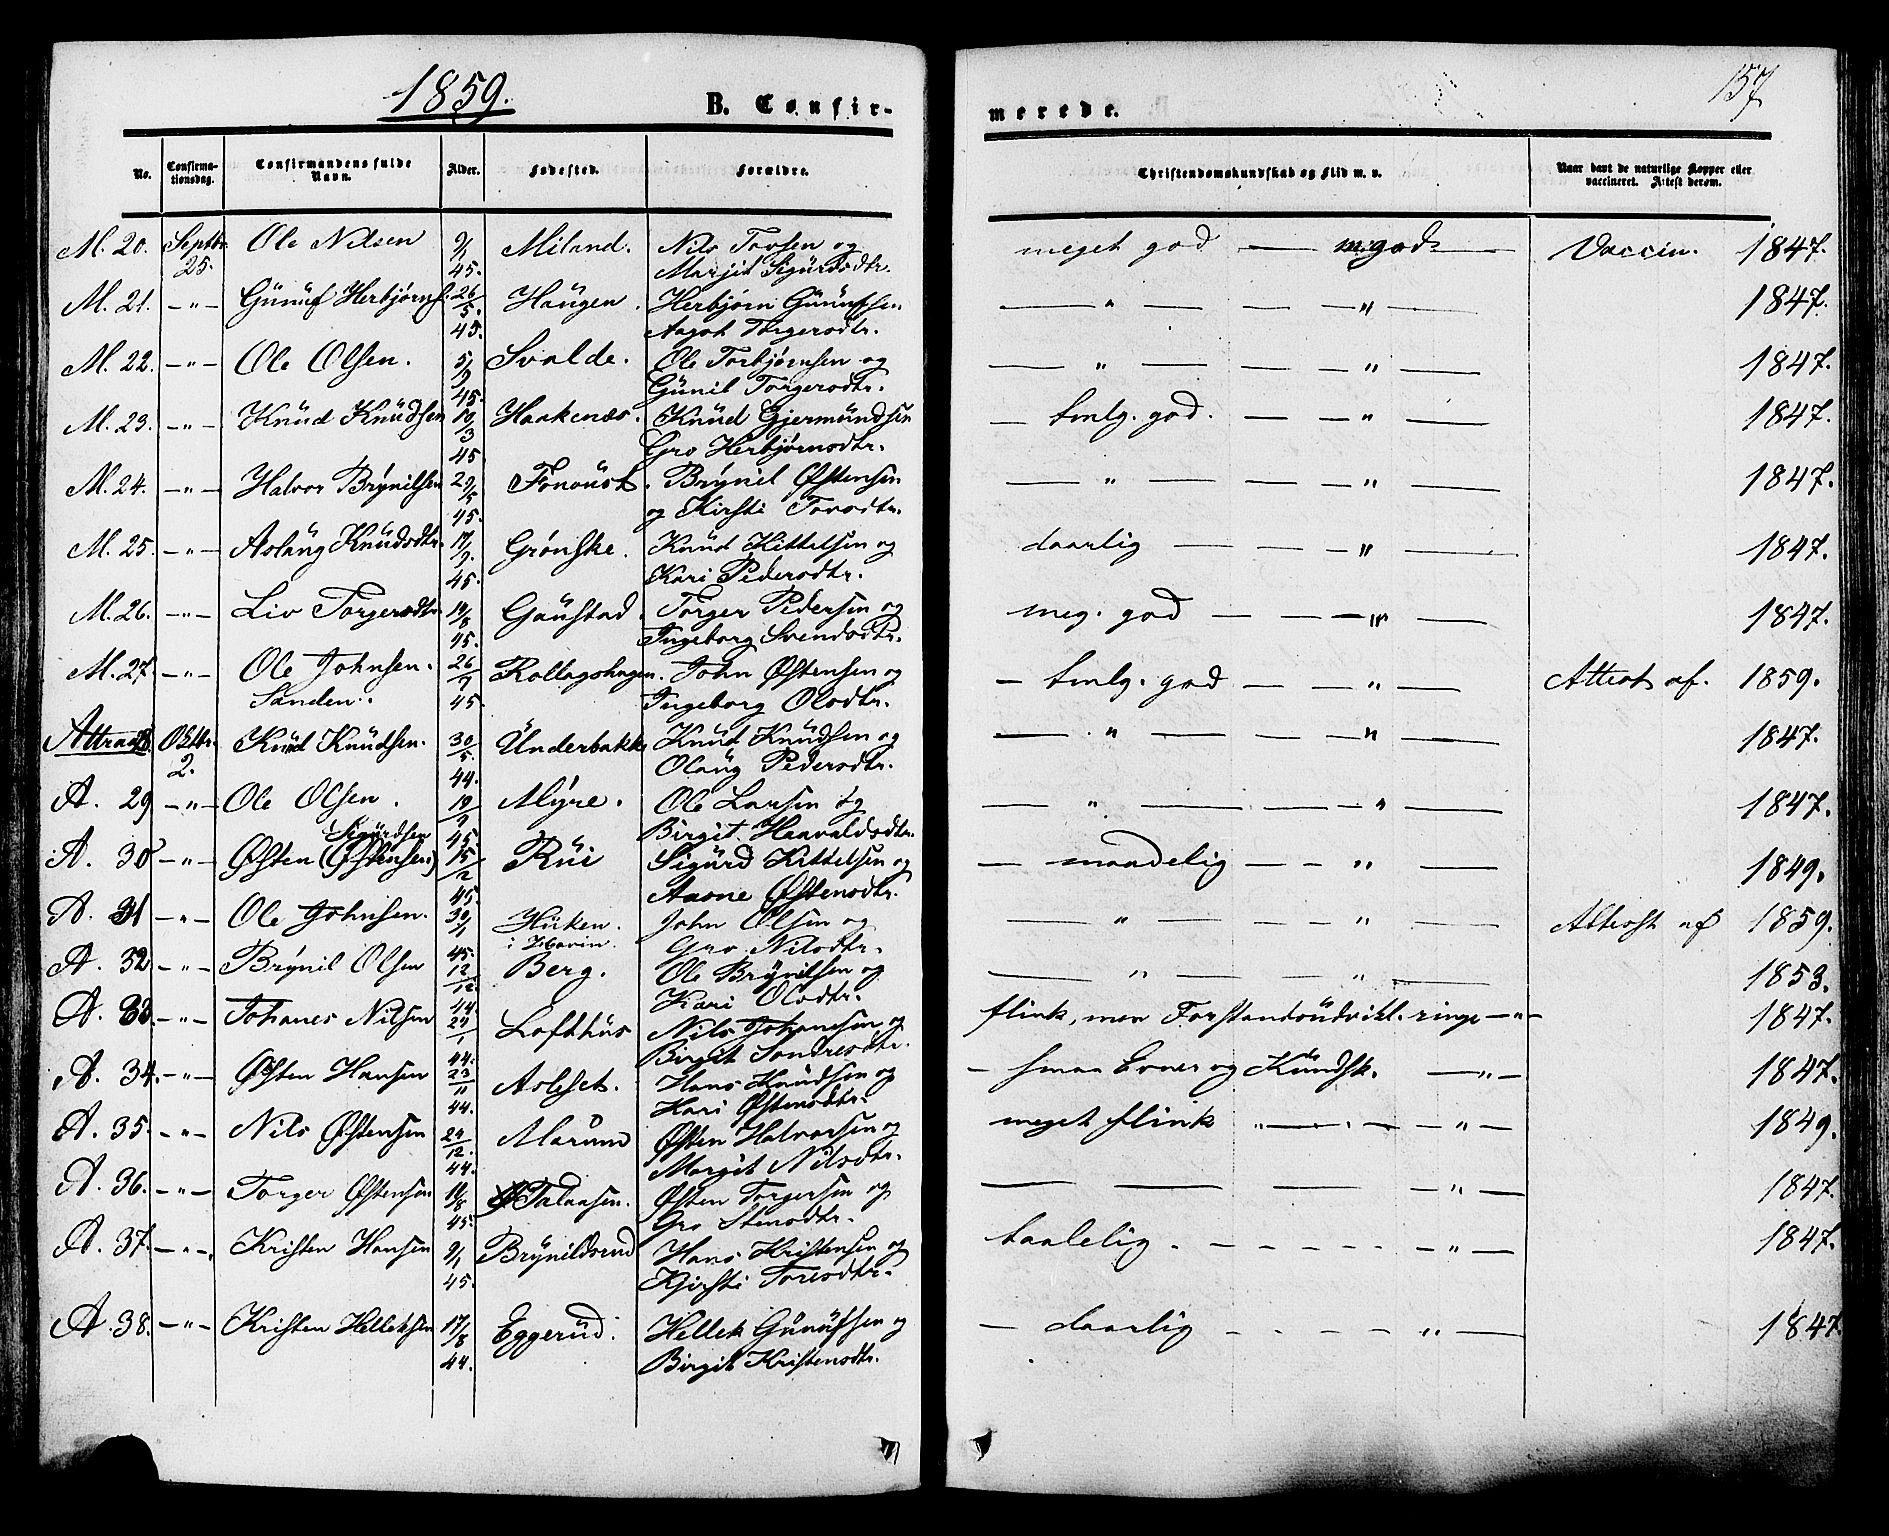 1859.
B. Confir-
merede.
157
No. Confirma-tionsdag. Confirmandens fulde Navn. Alder. Fødested. Forældre. Christendomskundskab og Flid m. v. Naar havt de naturlige Kopper eller vaccineret. Attest derom.
M. 20. Septbr. Ole Nilsen 9/1 Miland. Nils Tovsen og meget god — m. god — Vaccin. 1847.
25. 45. Marjit Sigurdsdtr.
M. 21. -"- Gunuf Herbjørns. 26/5. Haugen. Herbjørn Gunufsen — " — — — " — 1847.
45. Aagot Torgersdtr.
M. 22. -"- Ole Olsen. 5/9 Svalde. Ole Torbjørnsen og — " — — — " — 1847.
45. Gunil Torgersdtr.
M. 23. -"- Knud Knudsen 10/3 Haakenæs. Knud Gjermundsen — tmlg. god. — — " — 1847.
45 Gro Herbjørnsdtr.
M. 24. -"- Halvor Brynilsen 29/5 Fonoust. Brynil Østensen — " — — — " — 1847.
45. og Kirsti Tovsdtr.
M. 25. -"- Aslaug Knudsdtr. 17/9. Grønske. Knud Kittelsen og daarlig — — — " — 1847.
45. Kari Pedersdtr.
M. 26. -"- Liv Torgersdtr. 19/8 Gaustad. Torger Pedersen og meg. god — — — " — 1847.
45. Ingeborg Svendsdtr.
M. 27 -"- Ole Johnsen. 26/7 Rollagshagen. John Østensen og — tmlg. god — — " — Attest af. 1859.
Sanden. 45. Ingeborg Olsdtr.
Attraa 28. Oktbr. Knud Knudsen. 30/5. Underbakke Knut Knudsen og — " — — — " — 1847.
2. 44. Olaug Pedersdtr.
A. 29 -"- Ole Olsen. 19/9 Myre. Ole Larsen og — " — — — " — 1847.
Sigurdsen 45. Birgit Haavaldsdtr.
A. 30 -"- Østen (Østensen) 15/2 Rui Sigurd Kittelsen og — maadelig — — " — 1849.
45. Aasne Østensdtr.
A. 31 -"- Ole Johnsen. 30/1 Huken. John Olsen og — " — — " — Attest af 1859.
45. i Hovin. Gro Nilsdtr.
A. 32 -"- Brynil Olsen 12/12 Berg. Ole Brynilsen og — " — " — 1853.
44. Kari Olsdtr.
A. 33. -"- Johanes Nilsen 24/1 Lofthus Nils Johanesen og flink, men Forstandsudvikl. ringe -"- 1847.
44. Birgit Sondresdtr.
A. 34. -"- Østen Hansen 23/11 Asleset. Hans Knudsen og - smaa Evner og Kundsk. -"- 1847.
44. Kari Østensdtr.
A. 35. -"- Nils Østensen 24/12. Marum Østen Halvorsen og meget flink " — — " — 1849.
44. Margit Nilsdtr.
A. 36. -"- Torger Østensen 10/8 Talaasen. Østen Torgersen og — — — — " — 1847.
45. Gro Stensdtr.
A. 37. -"- Kristen Hansen 9/1 Brynildsrud Hans Kristensen og taalelig. - - - - " — 1847.
45. Kjirsti Toresdtr.
A. 38. -"- Kristen Helleksen 17/8 Eggerud. Hellek Gunufsen og — daarlig - - - - " — 1847.
44. Birgit Kristensdtr.